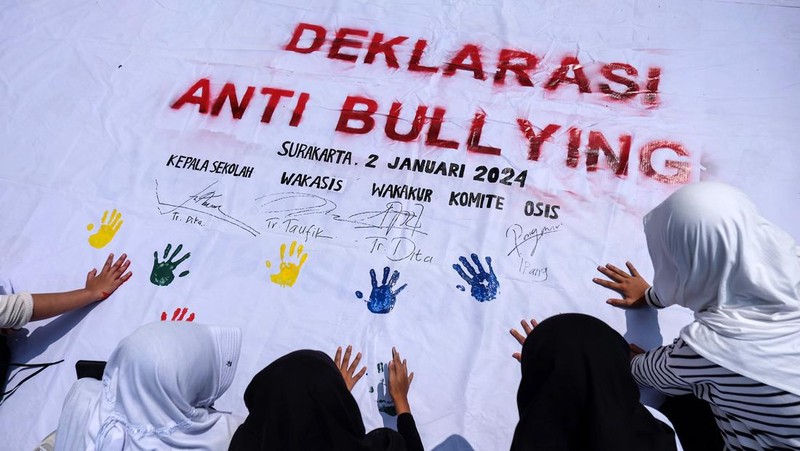 DEKLARASI
ANTI BULLYING
SURAKARTA. 2 JANUARI 2024
KEPALA SEKOLAH WAKASIS WAKAKUR KOMITE OSIS
Tr. Dika Tr. Taufik Tr. Dita Ipang